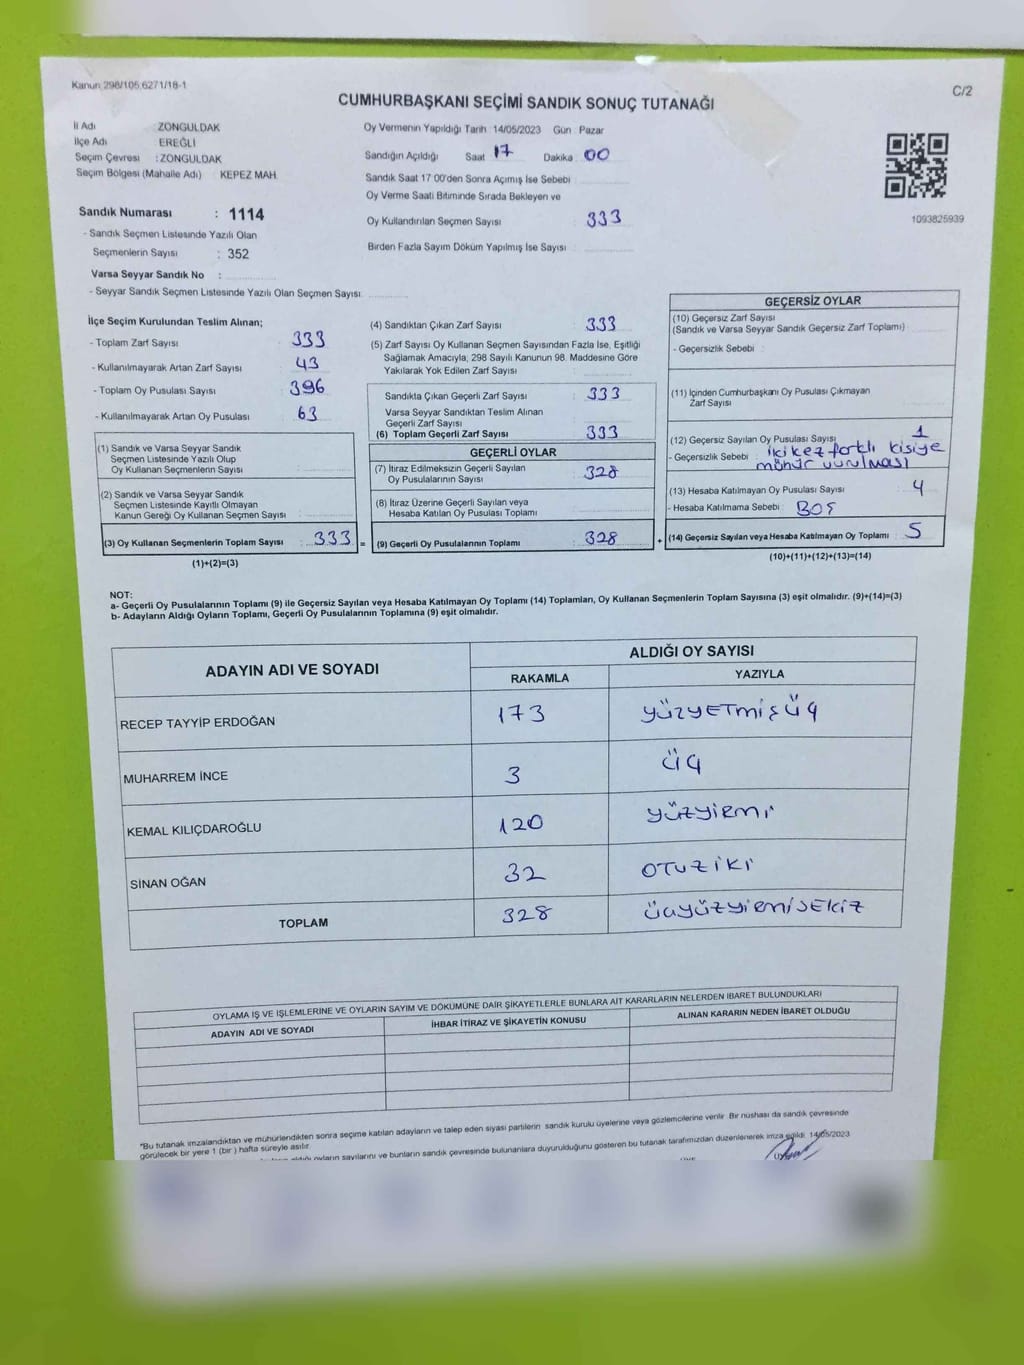 Kanun 298/105,6271/18-1
C/2
CUMHURBAŞKANI SEÇİMİ SANDIK SONUÇ TUTANAĞI
İl Adı : ZONGULDAK
İlçe Adı : EREĞLİ
Seçim Çevresi : ZONGULDAK
Seçim Bölgesi (Mahalle Adı) KEPEZ MAH.
Sandık Numarası : 1114
- Sandık Seçmen Listesinde Yazılı Olan
Seçmenlerin Sayısı : 352
Varsa Seyyar Sandık No :
- Seyyar Sandık Seçmen Listesinde Yazılı Olan Seçmen Sayısı
Oy Vermenin Yapıldığı Tarih 14/05/2023 Gün : Pazar
Sandığın Açıldığı Saat 17 Dakika 00
Sandık Saat 17:00'den Sonra Açımış İse Sebebi
Oy Verme Saati Bitiminde Sırada Bekleyen ve
Oy Kullandırılan Seçmen Sayısı : 333
Birden Fazla Sayım Döküm Yapılmış İse Sayısı
1093825939
İlçe Seçim Kurulundan Teslim Alınan;
- Toplam Zarf Sayısı 333
- Kullanılmayarak Artan Zarf Sayısı : 43
- Toplam Oy Pusulası Sayısı 396
- Kullanılmayarak Artan Oy Pusulası 63
(1) Sandık ve Varsa Seyyar Sandık
Seçmen Listesinde Yazılı Olup
Oy Kullanan Seçmenlerin Sayısı
(2) Sandık ve Varsa Seyyar Sandık
Seçmen Listesinde Kayıtlı Olmayan
Kanun Gereği Oy Kullanan Seçmen Sayısı
(3) Oy Kullanan Seçmenlerin Toplam Sayısı : 333 =
(1)+(2)=(3)
(4) Sandıktan Çıkan Zarf Sayısı : 333
(5) Zarf Sayısı Oy Kullanan Seçmen Sayısından Fazla İse, Eşitliği
Sağlamak Amacıyla; 298 Sayılı Kanunun 98. Maddesine Göre
Yakılarak Yok Edilen Zarf Sayısı
Sandıkta Çıkan Geçerli Zarf Sayısı : 333
Varsa Seyyar Sandıktan Teslim Alınan
Geçerli Zarf Sayısı
(6) Toplam Geçerli Zarf Sayısı 333
GEÇERLİ OYLAR
(7) İtiraz Edilmeksizin Geçerli Sayılan
Oy Pusulalarının Sayısı : 328
(8) İtiraz Üzerine Geçerli Sayılan veya
Hesaba Katılan Oy Pusulası Toplamı
(9) Geçerli Oy Pusulalarının Toplamı 328 +
GEÇERSİZ OYLAR
(10) Geçersiz Zarf Sayısı
(Sandık ve Varsa Seyyar Sandık Geçersiz Zarf Toplamı)
- Geçersizlik Sebebi :
(11) İçinden Cumhurbaşkanı Oy Pusulası Çıkmayan
Zarf Sayısı
(12) Geçersiz Sayılan Oy Pusulası Sayısı 1
- Geçersizlik Sebebi : iki kez farklı kişiye
mühür vurulması
(13) Hesaba Katılmayan Oy Pusulası Sayısı 4
- Hesaba Katılmama Sebebi : BOŞ
(14) Geçersiz Sayılan veya Hesaba Katılmayan Oy Toplamı : 5
(10)+(11)+(12)+(13)=(14)
NOT:
a- Geçerli Oy Pusulalarının Toplamı (9) ile Geçersiz Sayılan veya Hesaba Katılmayan Oy Toplamı (14) Toplamları, Oy Kullanan Seçmenlerin Toplam Sayısına (3) eşit olmalıdır. (9)+(14)=(3)
b- Adayların Aldığı Oyların Toplamı, Geçerli Oy Pusulalarının Toplamına (9) eşit olmalıdır.
ADAYIN ADI VE SOYADI ALDIĞI OY SAYISI
RAKAMLA YAZIYLA
RECEP TAYYİP ERDOĞAN 173 YÜZYETMİŞÜÇ
MUHARREM İNCE 3 ÜÇ
KEMAL KILIÇDAROĞLU 120 YÜZYİRMİ
SİNAN OĞAN 32 OTUZİKİ
TOPLAM 328 ÜÇYÜZYİRMİSEKİZ
OYLAMA İŞ VE İŞLEMLERİNE VE OYLARIN SAYIM VE DÖKÜMÜNE DAİR ŞİKAYETLERLE BUNLARA AİT KARARLARIN NELERDEN İBARET BULUNDUKLARI
ADAYIN ADI VE SOYADI İHBAR İTİRAZ VE ŞİKAYETİN KONUSU ALINAN KARARIN NEDEN İBARET OLDUĞU
"Bu tutanak imzalandıktan ve mühürlendikten sonra seçime katılan adayların ve talep eden siyasi partilerin sandık kurulu üyelerine veya gözlemcilerine verilir. Bir nüshası da sandık çevresinde
görülecek bir yere 1 (bir) hafta süreyle asılır.
aldığı oyların sayılarını ve bunların sandık çevresinde bulunanlara duyurulduğunu gösteren bu tutanak tarafımızdan düzenlenerek imza edildi. 14/05/2023